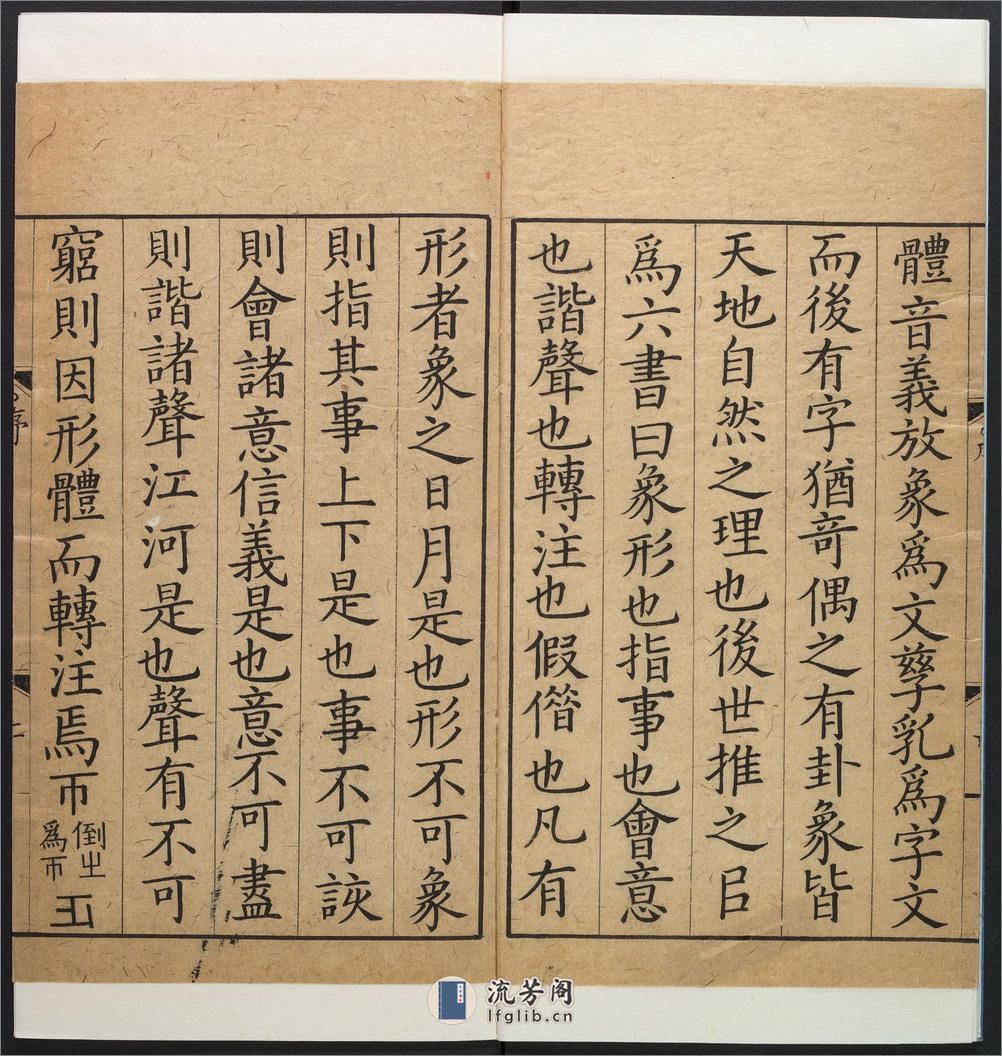 體音義放象爲文孳乳爲字文
而後有字猶竒偶之有卦象皆
天地自然之理也後世推之㠯
爲六書曰象形也指事也會意
也諧聲也轉注也假借也凡有
形者象之日月是也形不可象
則指其事上下是也事不可該
則會諸意信義是也意不可盡
則諧諸聲江河是也聲有不可
窮則因形體而轉注焉帀倒㞢爲帀
序
流芳阁
lfglib.cn